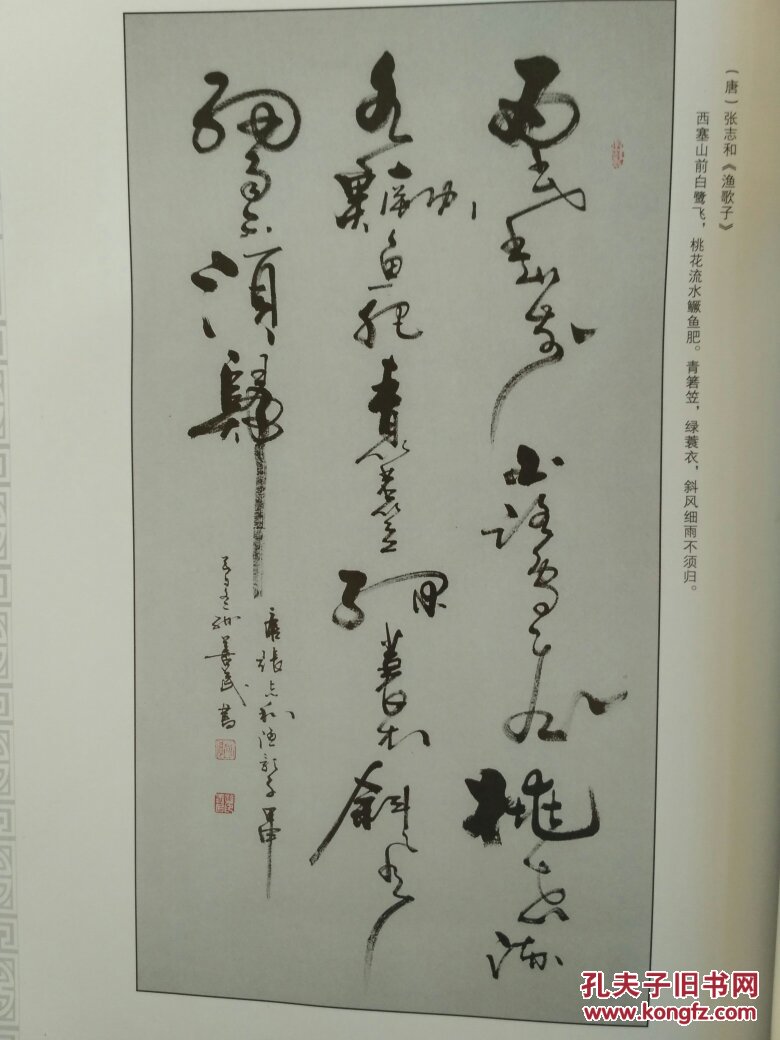 （唐）张志和《渔歌子》
西塞山前白鹭飞，桃花流水鳜鱼肥。青箬笠，绿蓑衣，斜风细雨不须归。
西塞山前白鹭飞桃花流
水鳜鱼肥青箬笠绿蓑衣斜风
细雨不须归
唐张志和渔歌子
书
孔夫子旧书网
www.kongfz.com